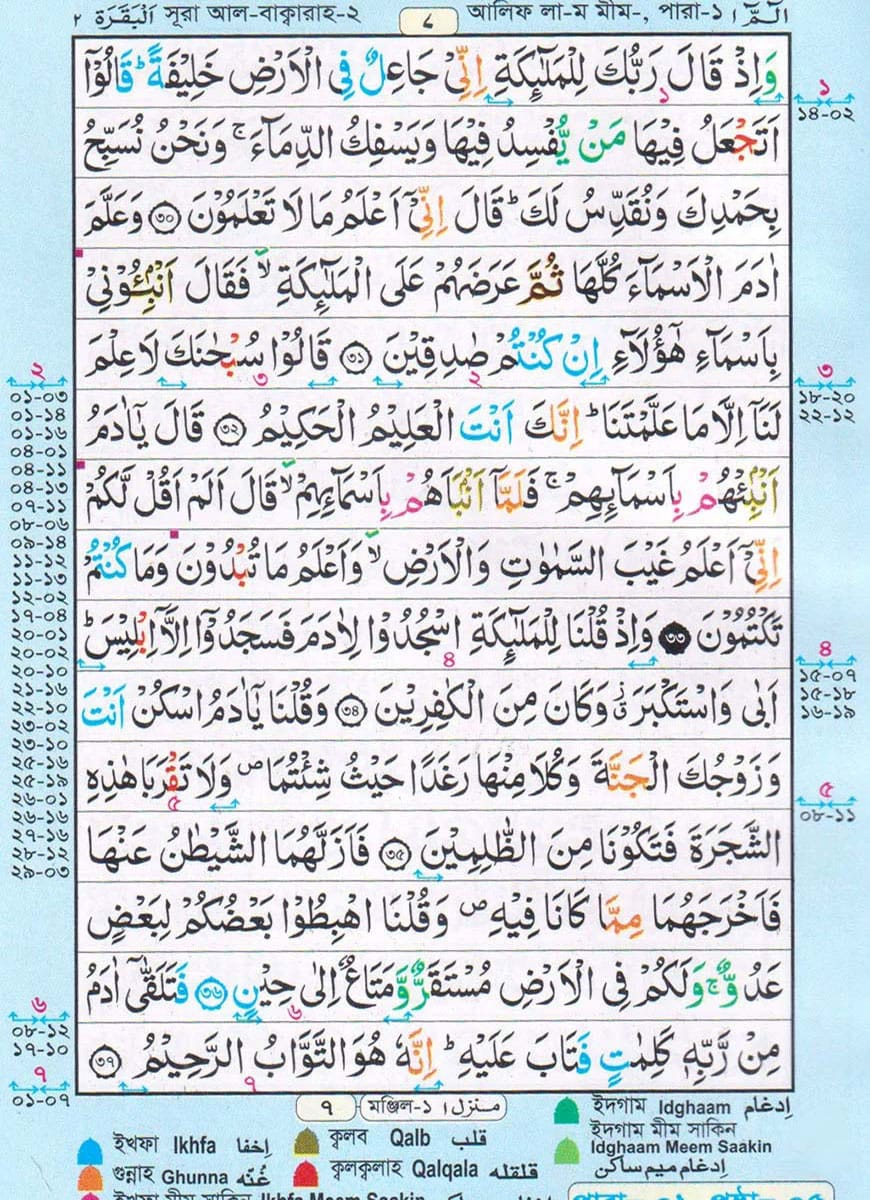 الٓمّٓ ١ আলিফ লা-ম মীম-, পারা-১ ٨ সূরা আল-বাক্বারাহ-২ اَلْبَقَرَة ٢
وَاِذْ قَالَ رَبُّكَ لِلْمَلٰٓئِكَةِ اِنِّىْ جَاعِلٌ فِى الْاَرْضِ خَلِيْفَةً ؕ قَالُوْٓا
اَتَجْعَلُ فِيْهَا مَنْ يُّفْسِدُ فِيْهَا وَيَسْفِكُ الدِّمَآءَ ۚ وَنَحْنُ نُسَبِّحُ
بِحَمْدِكَ وَنُقَدِّسُ لَكَ ؕ قَالَ اِنِّىْٓ اَعْلَمُ مَا لَا تَعْلَمُوْنَ ۝٣٠ وَعَلَّمَ
اٰدَمَ الْاَسْمَآءَ كُلَّهَا ثُمَّ عَرَضَهُمْ عَلَى الْمَلٰٓئِكَةِ ۙ فَقَالَ اَنْۢبِـُٔوْنِىْ
بِاَسْمَآءِ هٰٓؤُلَآءِ اِنْ كُنْتُمْ صٰدِقِيْنَ ۝٣١ قَالُوْا سُبْحٰنَكَ لَا عِلْمَ
لَنَآ اِلَّا مَا عَلَّمْتَنَا ؕ اِنَّكَ اَنْتَ الْعَلِيْمُ الْحَكِيْمُ ۝٣٢ قَالَ يٰٓاٰدَمُ
اَنْۢبِئْهُمْ بِاَسْمَآئِهِمْ ۚ فَلَمَّآ اَنْۢبَاَهُمْ بِاَسْمَآئِهِمْ ۙ قَالَ اَلَمْ اَقُلْ لَّكُمْ
اِنِّىْٓ اَعْلَمُ غَيْبَ السَّمٰوٰتِ وَالْاَرْضِ ۙ وَاَعْلَمُ مَا تُبْدُوْنَ وَمَا كُنْتُمْ
تَكْتُمُوْنَ ۝٣٣ وَاِذْ قُلْنَا لِلْمَلٰٓئِكَةِ اسْجُدُوْا لِاٰدَمَ فَسَجَدُوْٓا اِلَّآ اِبْلِيْسَ ؕ
اَبٰى وَاسْتَكْبَرَ ۫ وَكَانَ مِنَ الْكٰفِرِيْنَ ۝٣٤ وَقُلْنَا يٰٓاٰدَمُ اسْكُنْ اَنْتَ
وَزَوْجُكَ الْجَنَّةَ وَكُلَا مِنْهَا رَغَدًا حَيْثُ شِئْتُمَا ۪ وَلَا تَقْرَبَا هٰذِهِ
الشَّجَرَةَ فَتَكُوْنَا مِنَ الظّٰلِمِيْنَ ۝٣٥ فَاَزَلَّهُمَا الشَّيْطٰنُ عَنْهَا
فَاَخْرَجَهُمَا مِمَّا كَانَا فِيْهِ ۪ وَقُلْنَا اهْبِطُوْا بَعْضُكُمْ لِبَعْضٍ
عَدُوٌّ ۚ وَلَكُمْ فِى الْاَرْضِ مُسْتَقَرٌّ وَّمَتَاعٌ اِلٰى حِيْنٍ ۝٣٦ فَتَلَقّٰٓى اٰدَمُ
مِنْ رَّبِّهٖ كَلِمٰتٍ فَتَابَ عَلَيْهِ ؕ اِنَّهٗ هُوَ التَّوَّابُ الرَّحِيْمُ ۝٣٧
১
১৪-০২
৩
১৮-২০
২২-১২
৪
১৫-০৭
১৫-১৮
১৬-১৯
৫
০৮-১১
২
০১-০৩
০১-১৪
০১-১৬
০৪-০১
০৪-১১
০৪-১৩
০৭-১১
০৮-০৬
০৯-১৪
১১-১২
১১-১৩
১২-০২
১৭-০৪
২০-০১
২০-০২
২০-১০
২১-১৬
২২-১০
২৩-০২
২৩-১০
২৫-১৬
২৫-১৯
২৬-০১
২৬-১৬
২৭-১৬
২৮-১২
২৯-০৩
৬
০৮-১২
১৭-১০
৭
০১-০৭
৭ মঞ্জিল-১ منزل ١
ইদগাম Idghaam اِدغام
ইদগাম মীম সাকিন
Idghaam Meem Saakin
اِدغام ميم ساكن
ইখফা Ikhfa اخفا
ক্বলব Qalb قلب
গুন্নাহ Ghunna غُنّه
ক্বলক্বলাহ Qalqala قلقله
ইখফা মীম সাকিন Ikhfa Meem Saakin